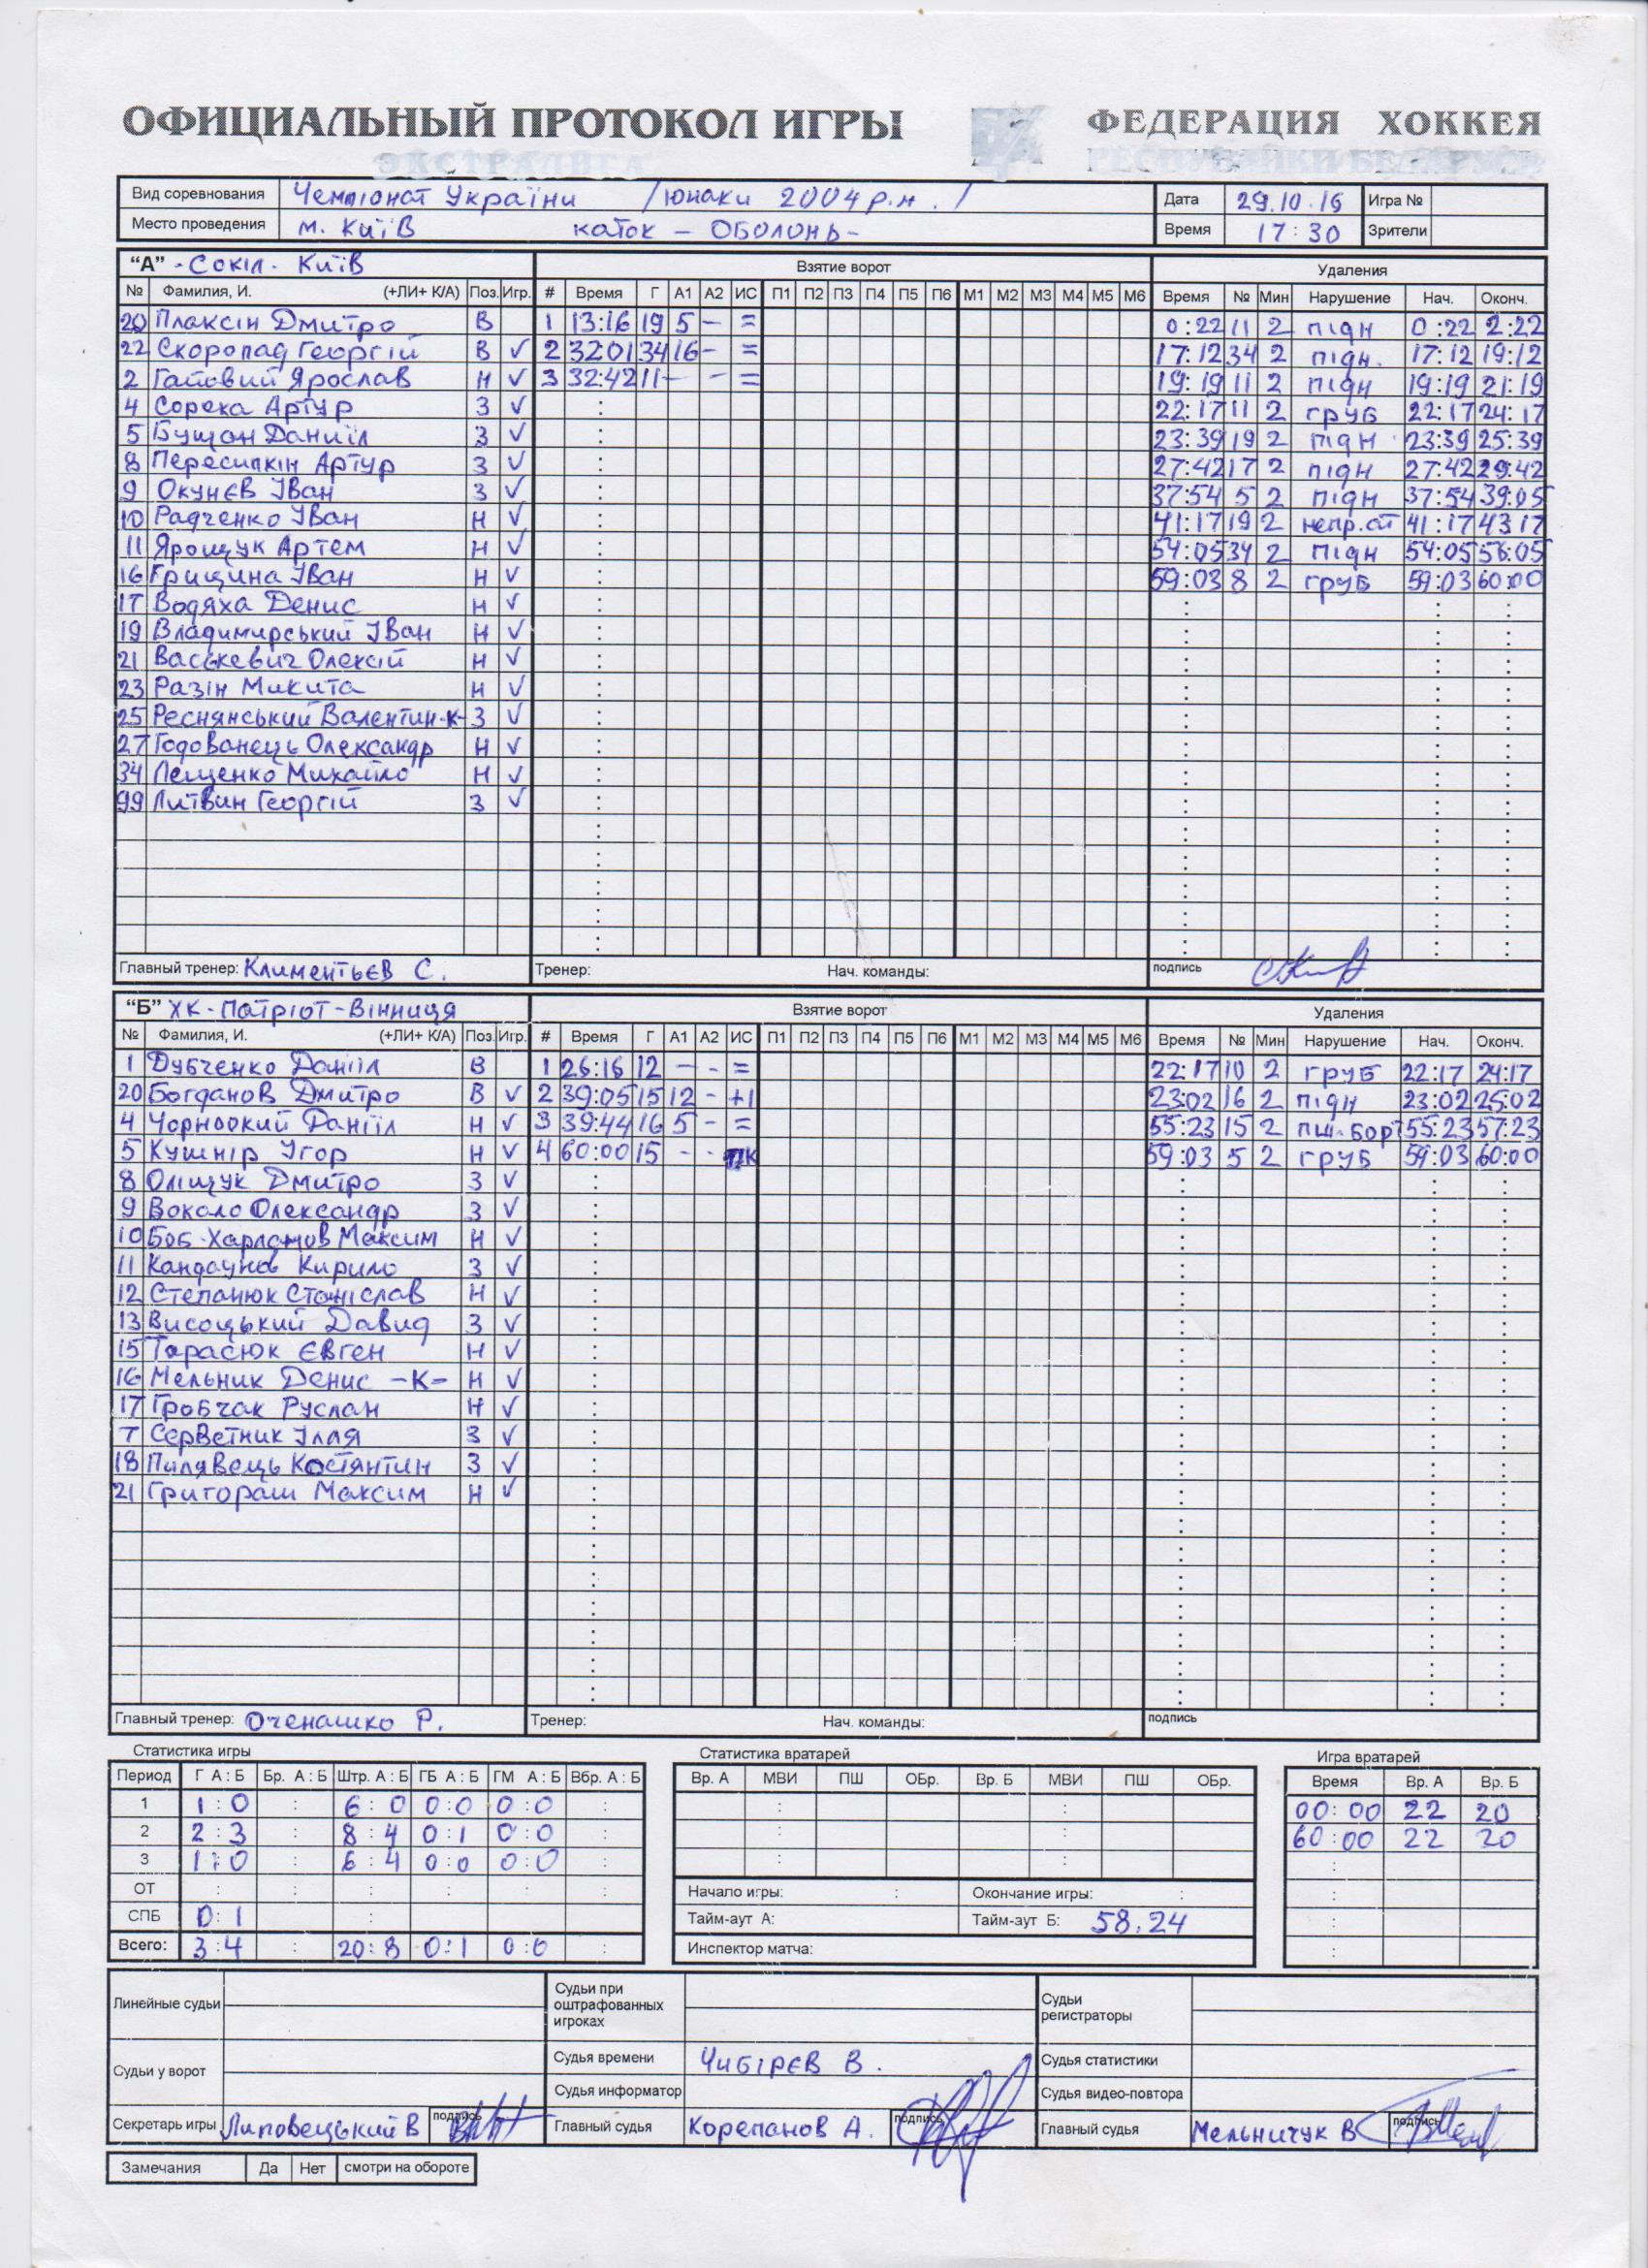 ОФИЦИАЛЬНЫЙ ПРОТОКОЛ ИГРЫ ФЕДЕРАЦИЯ ХОККЕЯ
ЭКСТРАЛИГА РЕСПУБЛИКИ БЕЛАРУСЬ
Вид соревнования Чемпіонат України /юнаки 2004 р.н./ Дата 29.10.16 Игра №
Место проведения м. Київ каток - ОБОЛОНЬ- Время 17:30 Зрители
"А" - Сокіл - Київ Взятие ворот Удаления
№ Фамилия, И. (+ЛИ+ К/А) Поз. Игр. # Время Г А1 А2 ИС П1 П2 П3 П4 П5 П6 М1 М2 М3 М4 М5 М6 Время № Мин Нарушение Нач. Оконч.
20 Плаксін Дмитро В 1 13:16 19 5 - = 0:22 11 2 підн 0:22 2:22
22 Скоропад Георгій В √ 2 32 01 34 16 - = 17:12 34 2 підн. 17:12 19:12
2 Гайовий Ярослав Н √ 3 32:42 11 - - = 19:19 11 2 підн 19:19 21:19
4 Сорока Артур З √ 22:17 11 2 груб 22:17 24:17
5 Бущан Даниїл З √ 23:39 19 2 підн 23:39 25:39
8 Пересипкін Артур З √ 27:42 17 2 підн 27:42 29:42
9 Окунєв Іван З √ 37:54 5 2 підн 37:54 39:05
10 Радченко Іван Н √ 41:17 19 2 непр.ат 41:17 43 17
11 Ярощук Артем Н √ 54:05 34 2 підн 54:05 56:05
16 Грищина Іван Н √ 59:03 8 2 груб 59:03 60:00
17 Водяха Денис Н √
19 Владимирський Іван Н √
21 Васькевич Олексій Н √
23 Разін Микита Н √
25 Реснянський Валентин-к- З √
27 Годованець Олександр Н √
34 Лещенко Михайло Н √
99 Литвин Георгій З √
Главный тренер: Климентьєв С. Тренер: Нач. команды: подпись
"Б" ХК - Патріот - Вінниця Взятие ворот Удаления
№ Фамилия, И. (+ЛИ+ К/А) Поз. Игр. # Время Г А1 А2 ИС П1 П2 П3 П4 П5 П6 М1 М2 М3 М4 М5 М6 Время № Мин Нарушение Нач. Оконч.
1 Дубченко Данііл В 1 26:16 12 - - = 22:17 10 2 груб 22:17 24:17
20 Богданов Дмитро В √ 2 39:05 15 12 - +1 23:02 16 2 підн 23:02 25:02
4 Чорноокий Данііл Н √ 3 39:44 16 5 - = 55:23 15 2 пш-борт 55:23 57:23
5 Кушнір Ігор Н √ 4 60:00 15 - - ПК 59:03 5 2 груб 59:03 60:00
8 Оліщук Дмитро З √
9 Вокало Олександр З √
10 Боб-Харламов Максим Н √
11 Кандаунов Кирило З √
12 Степанюк Станіслав Н √
13 Висоцький Давид З √
15 Тарасюк Євген Н √
16 Мельник Денис -К- Н √
17 Гробчак Руслан Н √
7 Серветник Ілля З √
18 Пилявець Костянтин З √
21 Григораш Максим Н √
Главный тренер: Оченашко Р. Тренер: Нач. команды: подпись
Статистика игры Статистика вратарей Игра вратарей
Период Г А : Б Бр. А : Б Штр. А : Б ГБ А : Б ГМ А : Б Вбр. А : Б Вр. А МВИ ПШ ОБр. Вр. Б МВИ ПШ ОБр. Время Вр. А Вр. Б
1 1:0 6:0 0:0 0:0 00:00 22 20
2 2:3 8:4 0:1 0:0 60:00 22 20
3 1:0 6:4 0:0 0:0
ОТ Начало игры: Окончание игры:
СПБ 0:1 Тайм-аут А: Тайм-аут Б: 58.24
Всего: 3:4 20:8 0:1 0:0 Инспектор матча:
Линейные судьи Судьи при оштрафованных игроках Судьи регистраторы
Судьи у ворот Судья времени Чибірєв В. Судья статистики
Судья информатор Судья видео-повтора
Секретарь игры Липовецький В подпись Главный судья Корепанов А. подпись Главный судья Мельничук В подпись
Замечания Да Нет смотри на обороте